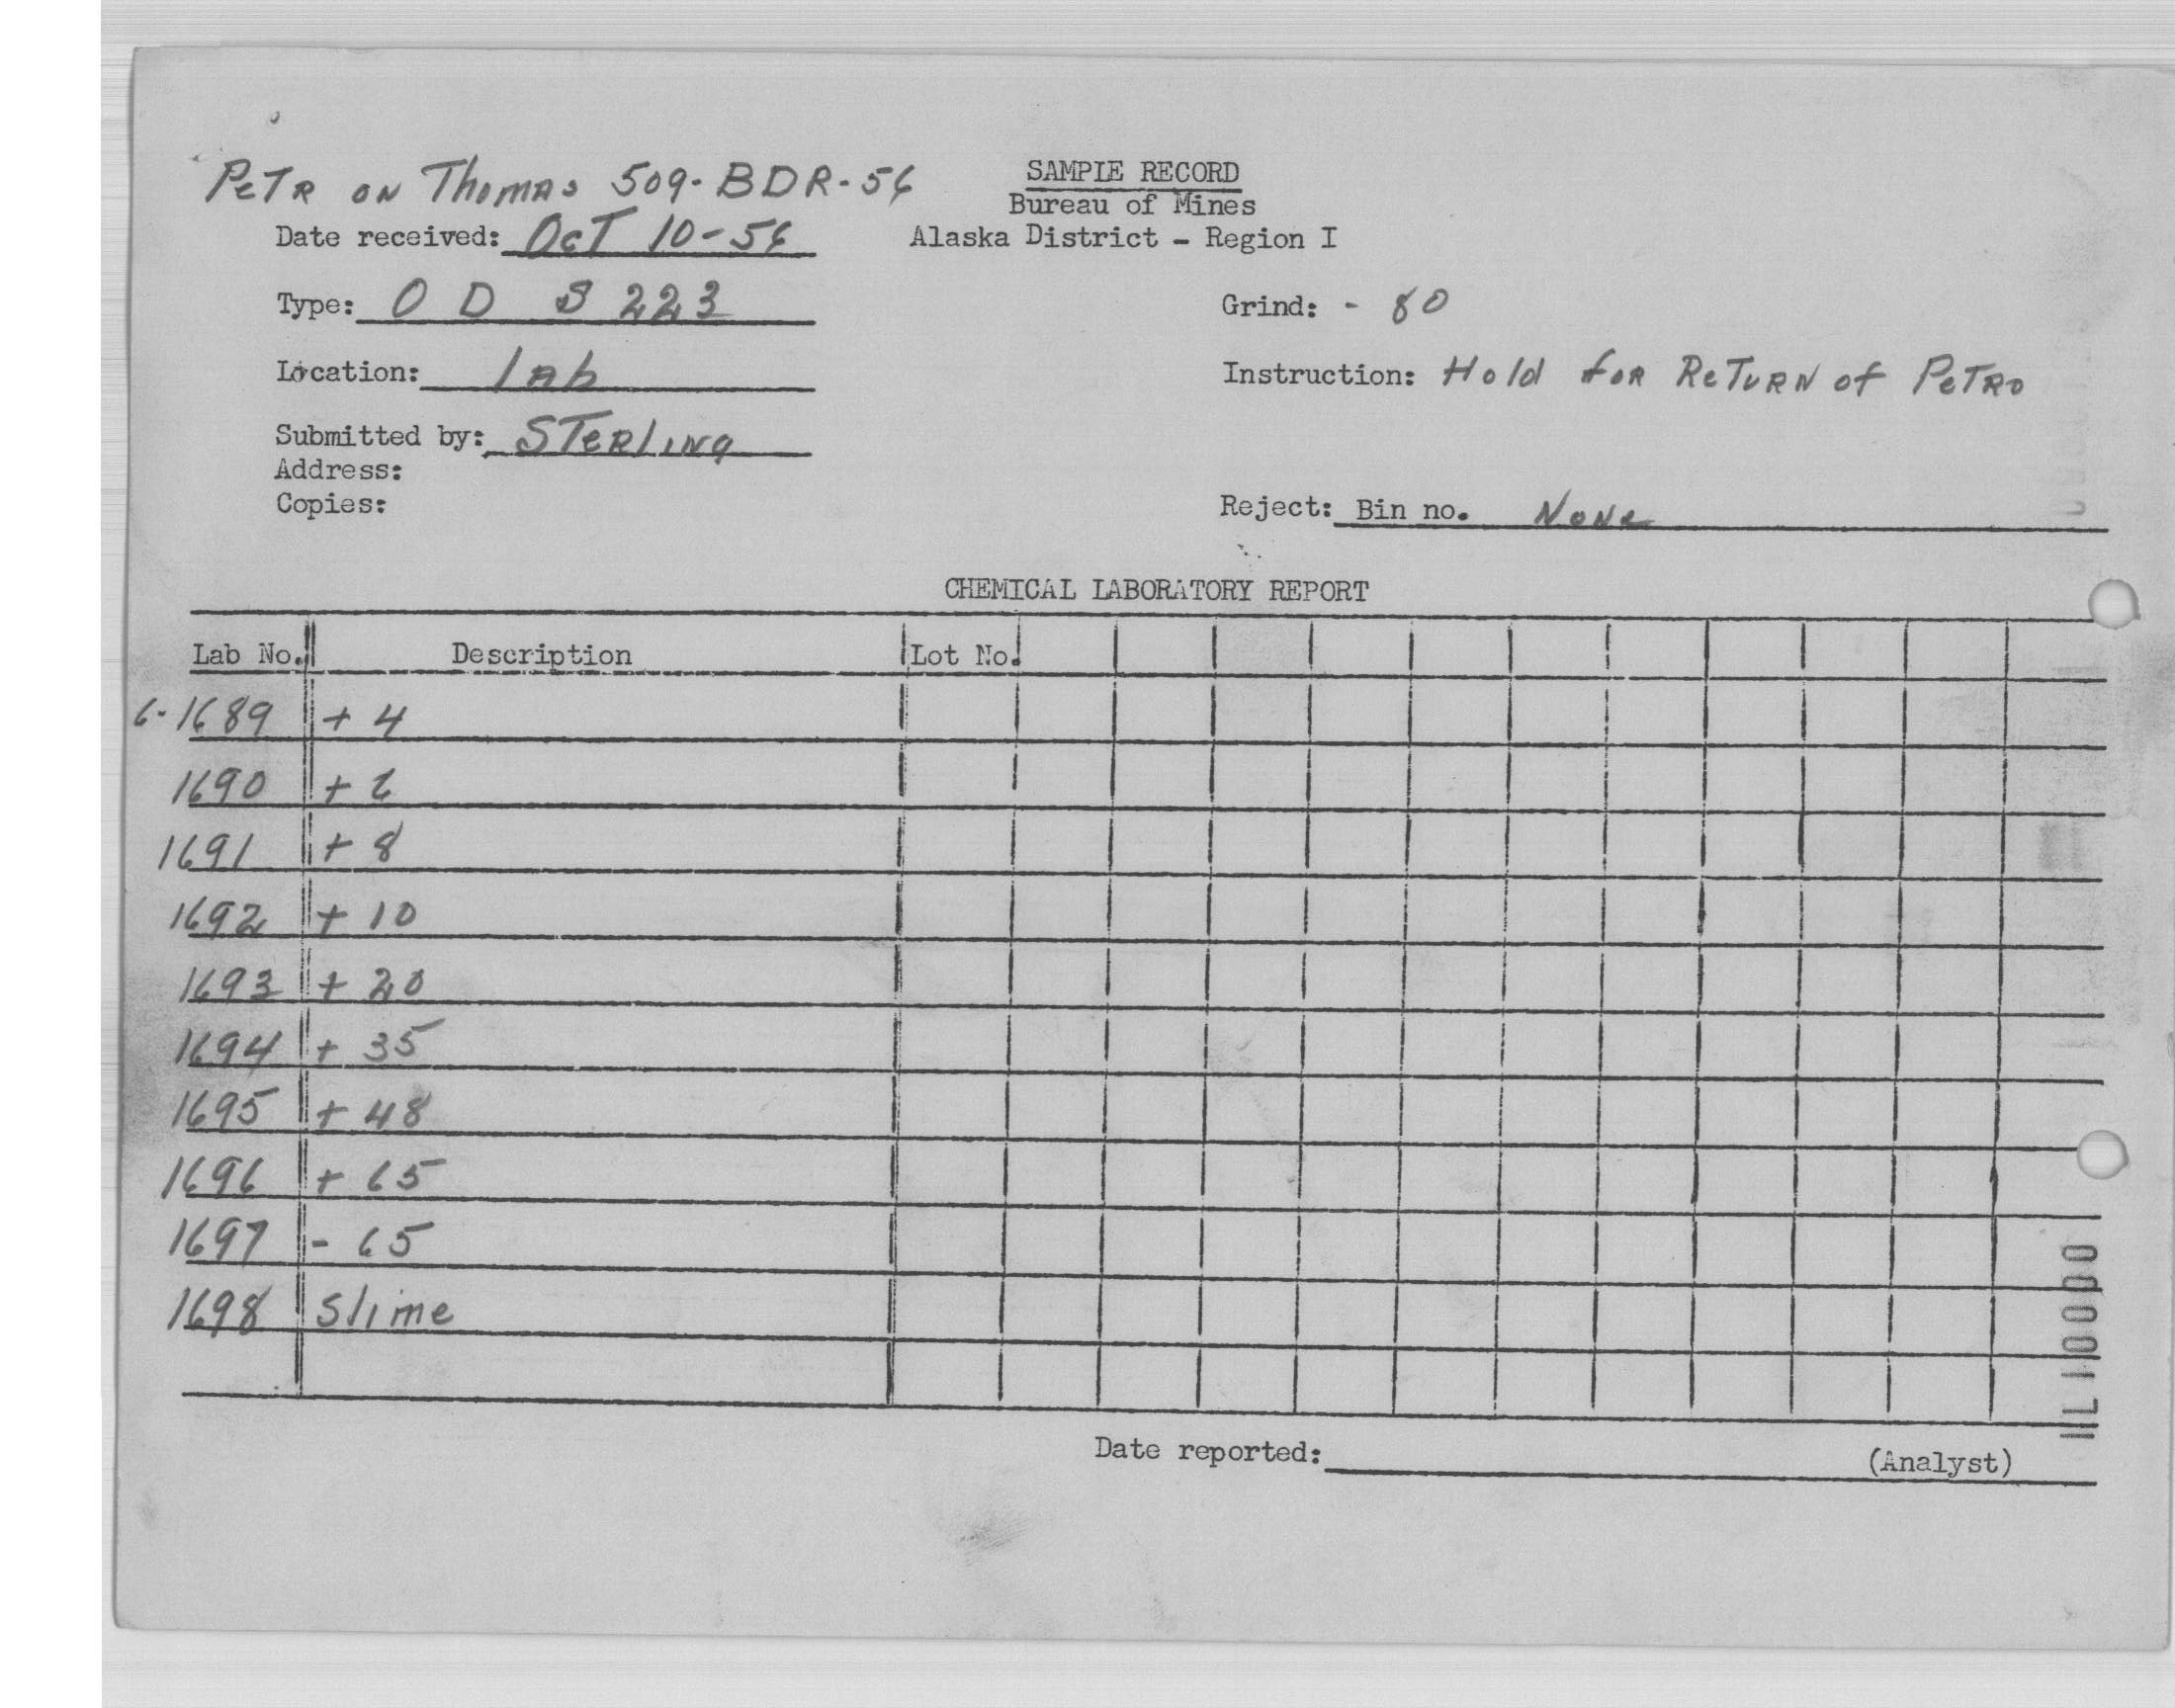 PeTR ON Thomas 509-BDR-56
SAMPLE RECORD
Bureau of Mines
Alaska District - Region I
Date received: OcT 10-56
Type: O D S 223
Grind: - 80
Location: lab
Instruction: Hold foR ReTuRN of PeTRo
Submitted by: STeRliNg
Address:
Copies:
Reject: Bin no. NoNe
CHEMICAL LABORATORY REPORT
Lab No. Description Lot No.
6-1689 + 4
1690 + 6
1691 + 8
1692 + 10
1693 + 20
1694 + 35
1695 + 48
1696 + 65
1697 - 65
1698 Slime
Date reported: (Analyst)